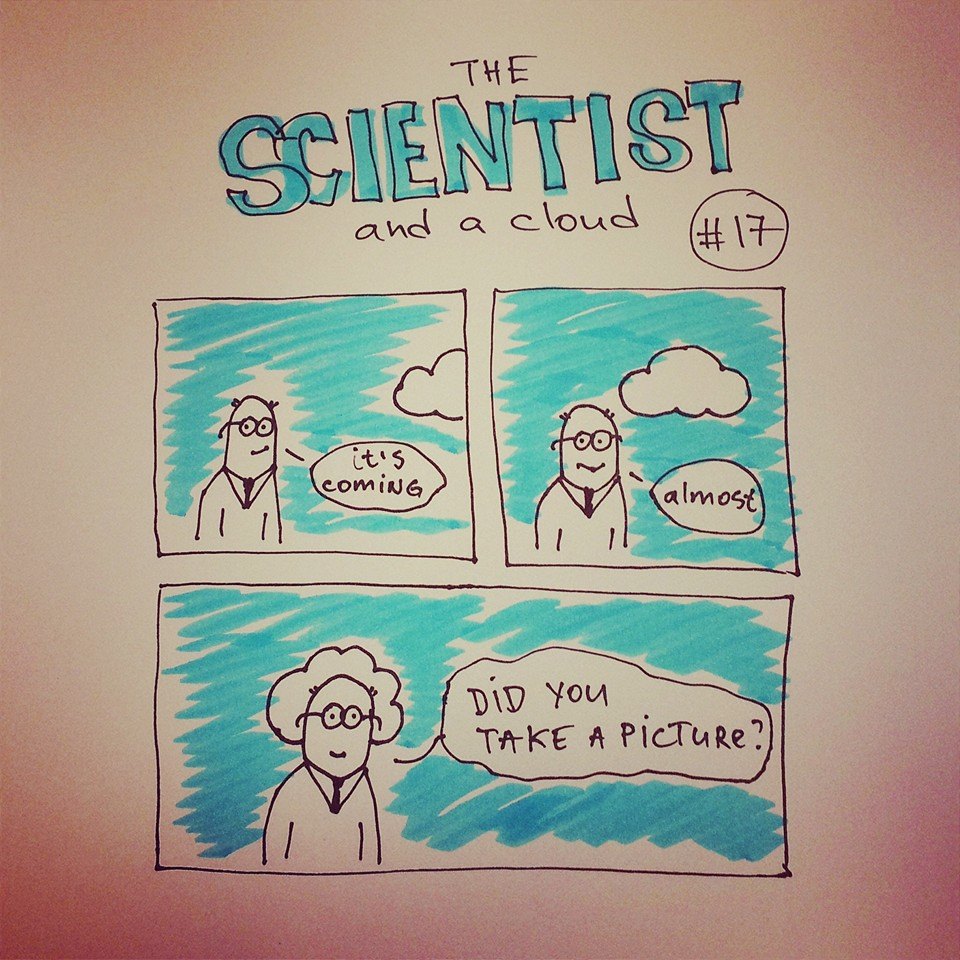 THE
SCIENTIST
and a cloud
#17
it's
coming
almost
DiD YOU
TAKE A PiCTURe?